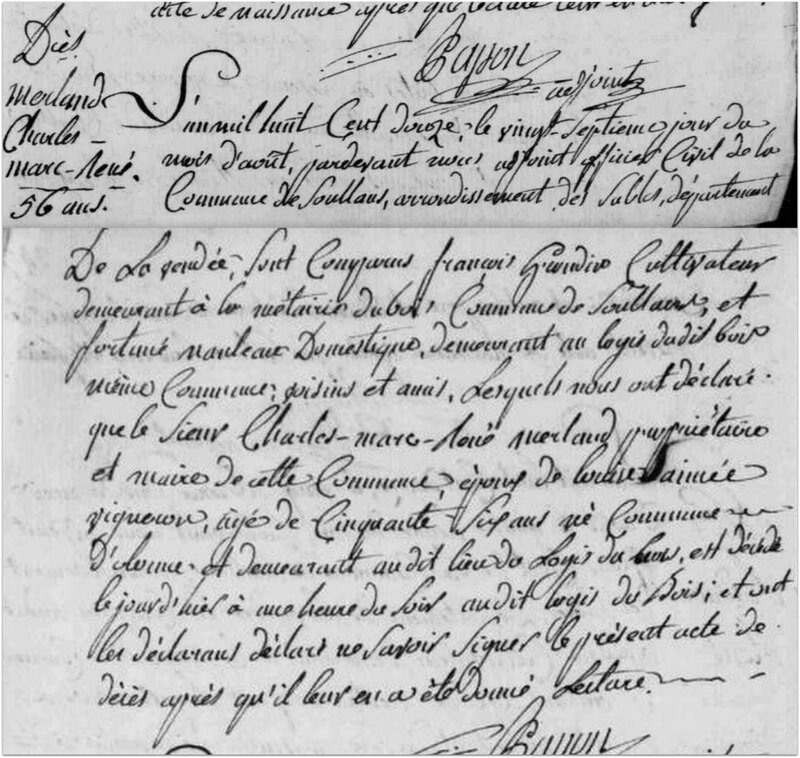 acte de naissance après que lecture leur en
Papon
adjoint
Décès.
Merland
Charles-
marc-René.
56 ans.
L'an mil huit Cent douze, le vingt-Septieme jour du
mois d'août, pardevant nous, adjoint officier Civil de la
Commune de Soullans, arrondissement des Sables, département
De La vendée, Sont Comparus françois Cultivateur
demeurant à la métairie du bois Commune de Soullans, et
fortuné nauleau Domestique, demeurant au logis dudit bois
même Commune, voisins et amis, Lesquels nous ont déclaré
que le Sieur Charles-marc-René merland propriétaire
et maire de cette Commune, époux de louise aimée
vigneron, âgé de Cinquante Six ans né Commune
d'olonne et demeurant audit lieu du Logis du bois, est décédé
le jour d'hier à une heure du Soir audit logis du Bois; et ont
les déclarans déclaré ne Savoir Signer le présent acte de
décès après qu'il leur en a été donné Lecture.
Papon